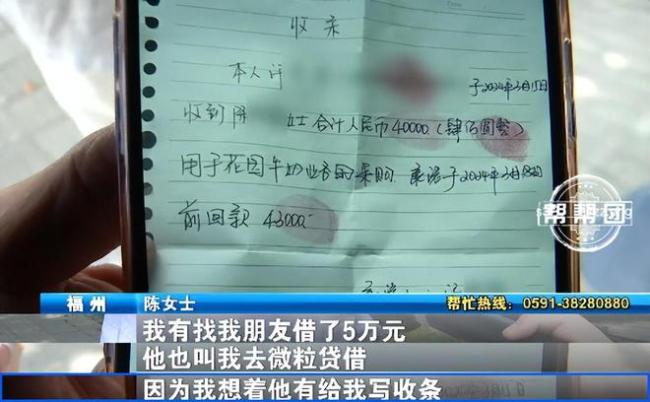 收条
本人 于2024年3月15日
收到陈 女士合计人民币40000(肆佰圆整)
用于花园牛奶业务的采购 承诺于2024年3月18日
前回款 43000
帮帮团
福州 陈女士 帮忙热线：0591-38280880
我有找我朋友借了5万元
他也叫我去微粒贷借
因为我想着他有给我写收条